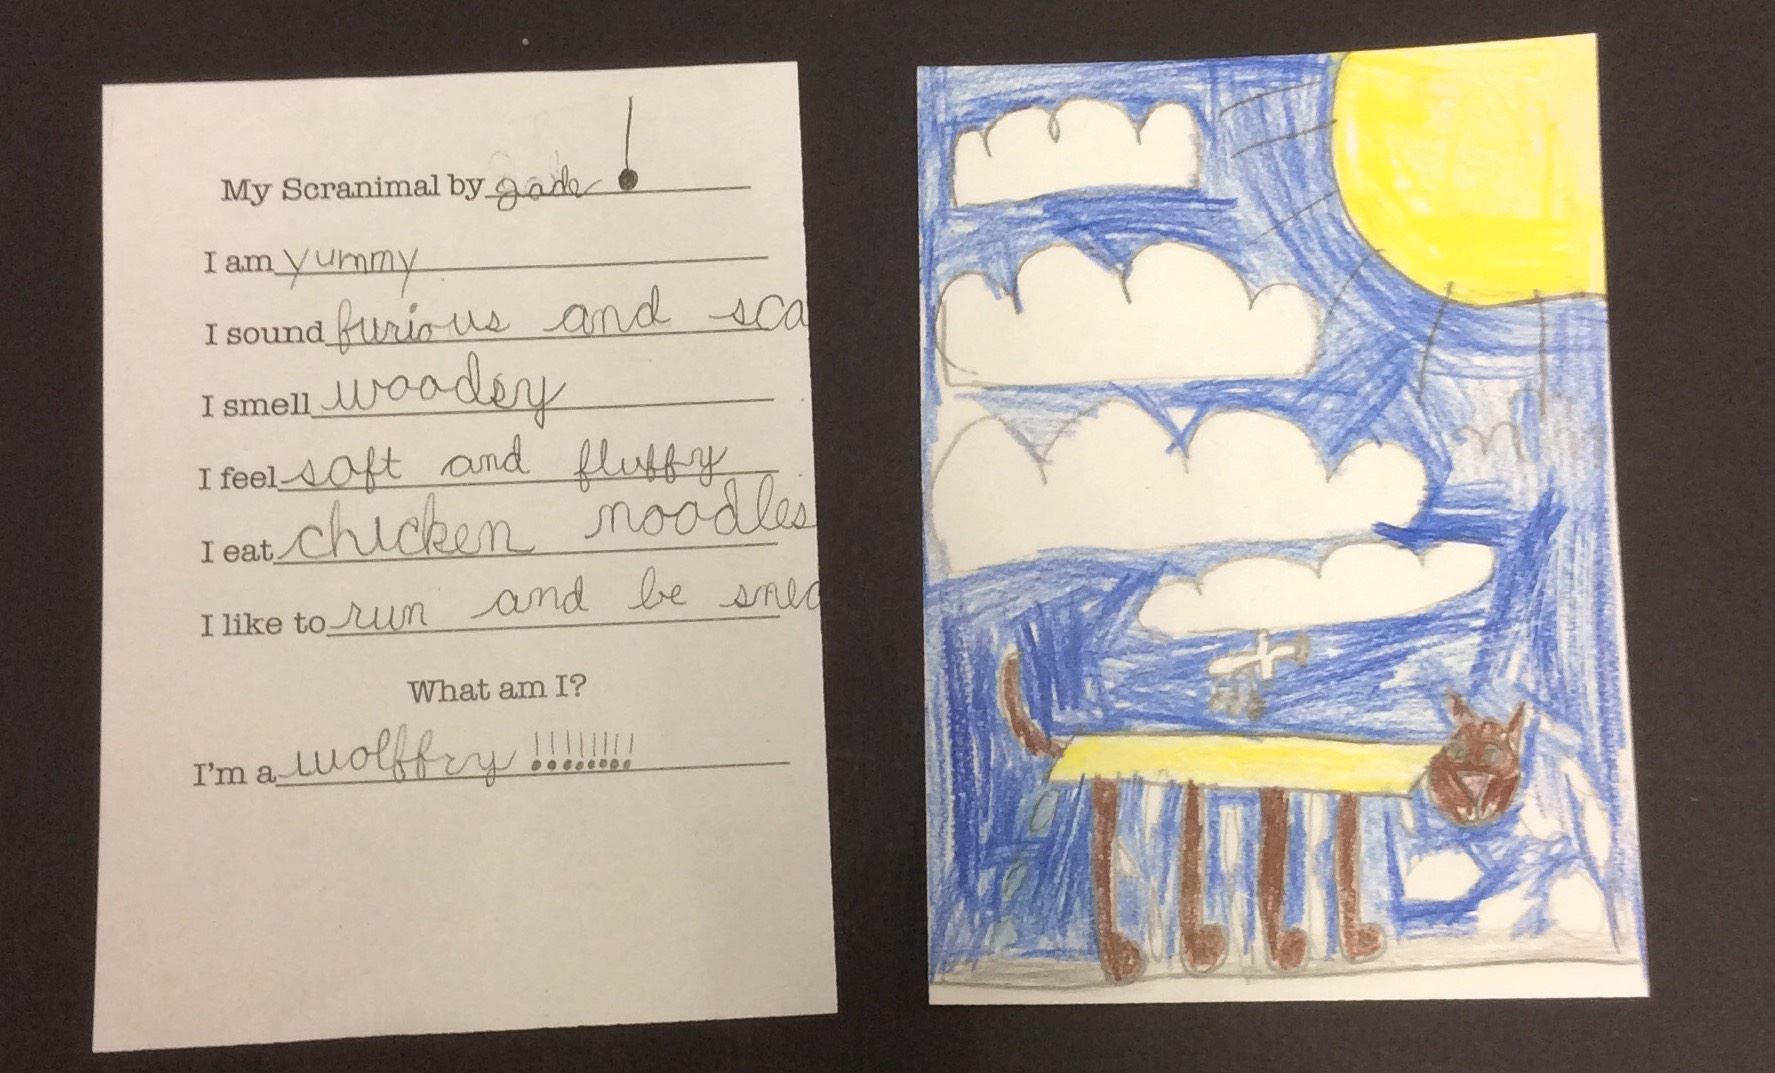 My Scranimal by jade !
I am yummy
I sound furious and sca
I smell woodsy
I feel soft and fluffy
I eat chicken noodles
I like to run and be snea
What am I?
I'm a wolffry !!!!!!!!